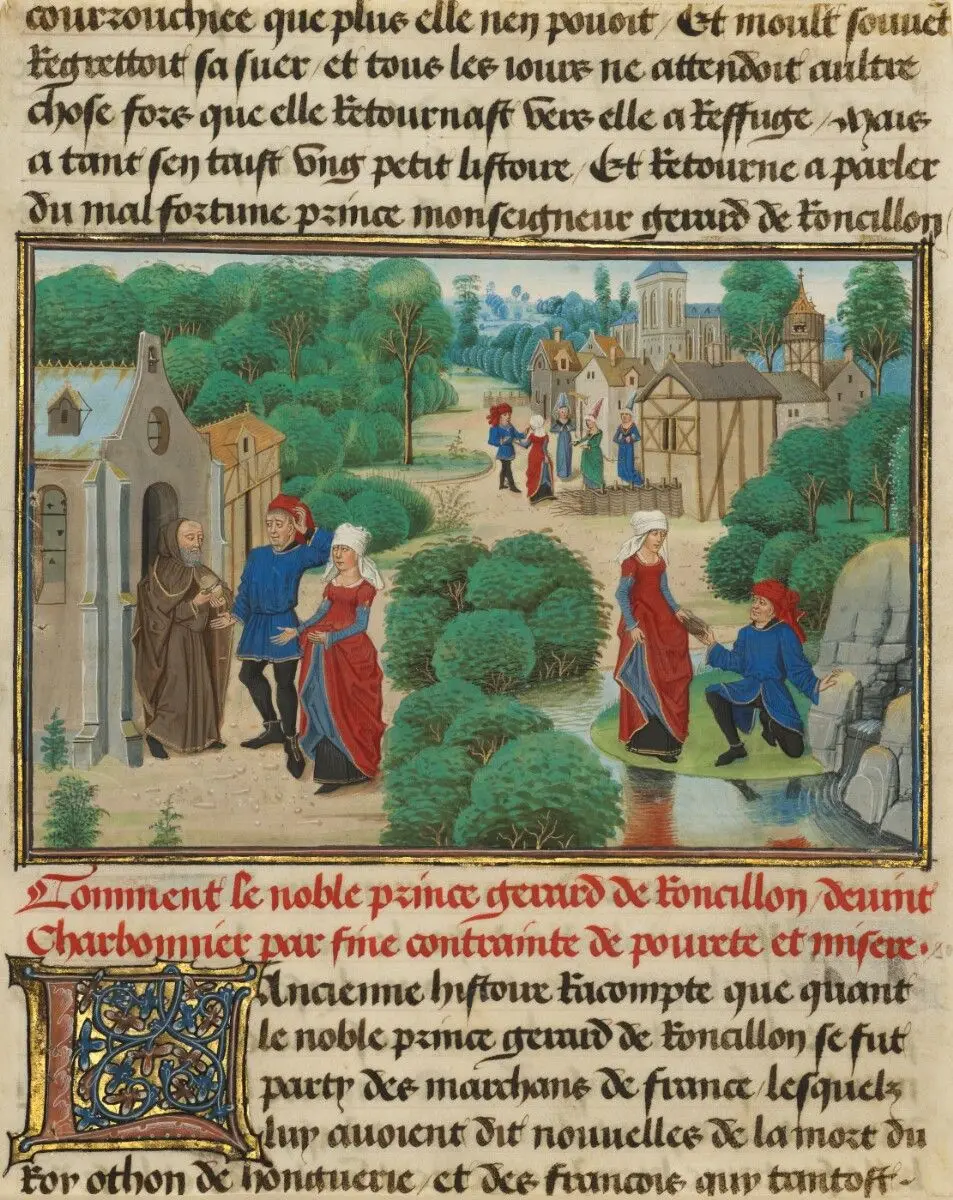 courzouchiee que plus elle nen pouoit / Et moult souuet
Regrettoit sa suer / et tous les iours ne attendoit aultre
chose fors que elle Retournast vers elle a Reffuge / Mais
a tant sen taist vng petit listoire / Et Retourne a parler
du mal fortune prince monseigneur gerard de Roncillon /
Comment le noble prince gerard de Roncillon / deuint
Charbonnier par fine contrainte de pourete et misere.
LAncienne histoire Racompte que quant
le noble prince gerard de Roncillon se fut
party des marchans de france / lesquelz
luy auoient dit nouuelles de la mort du
Roy othon de honguerie / et des francois quy tantost-